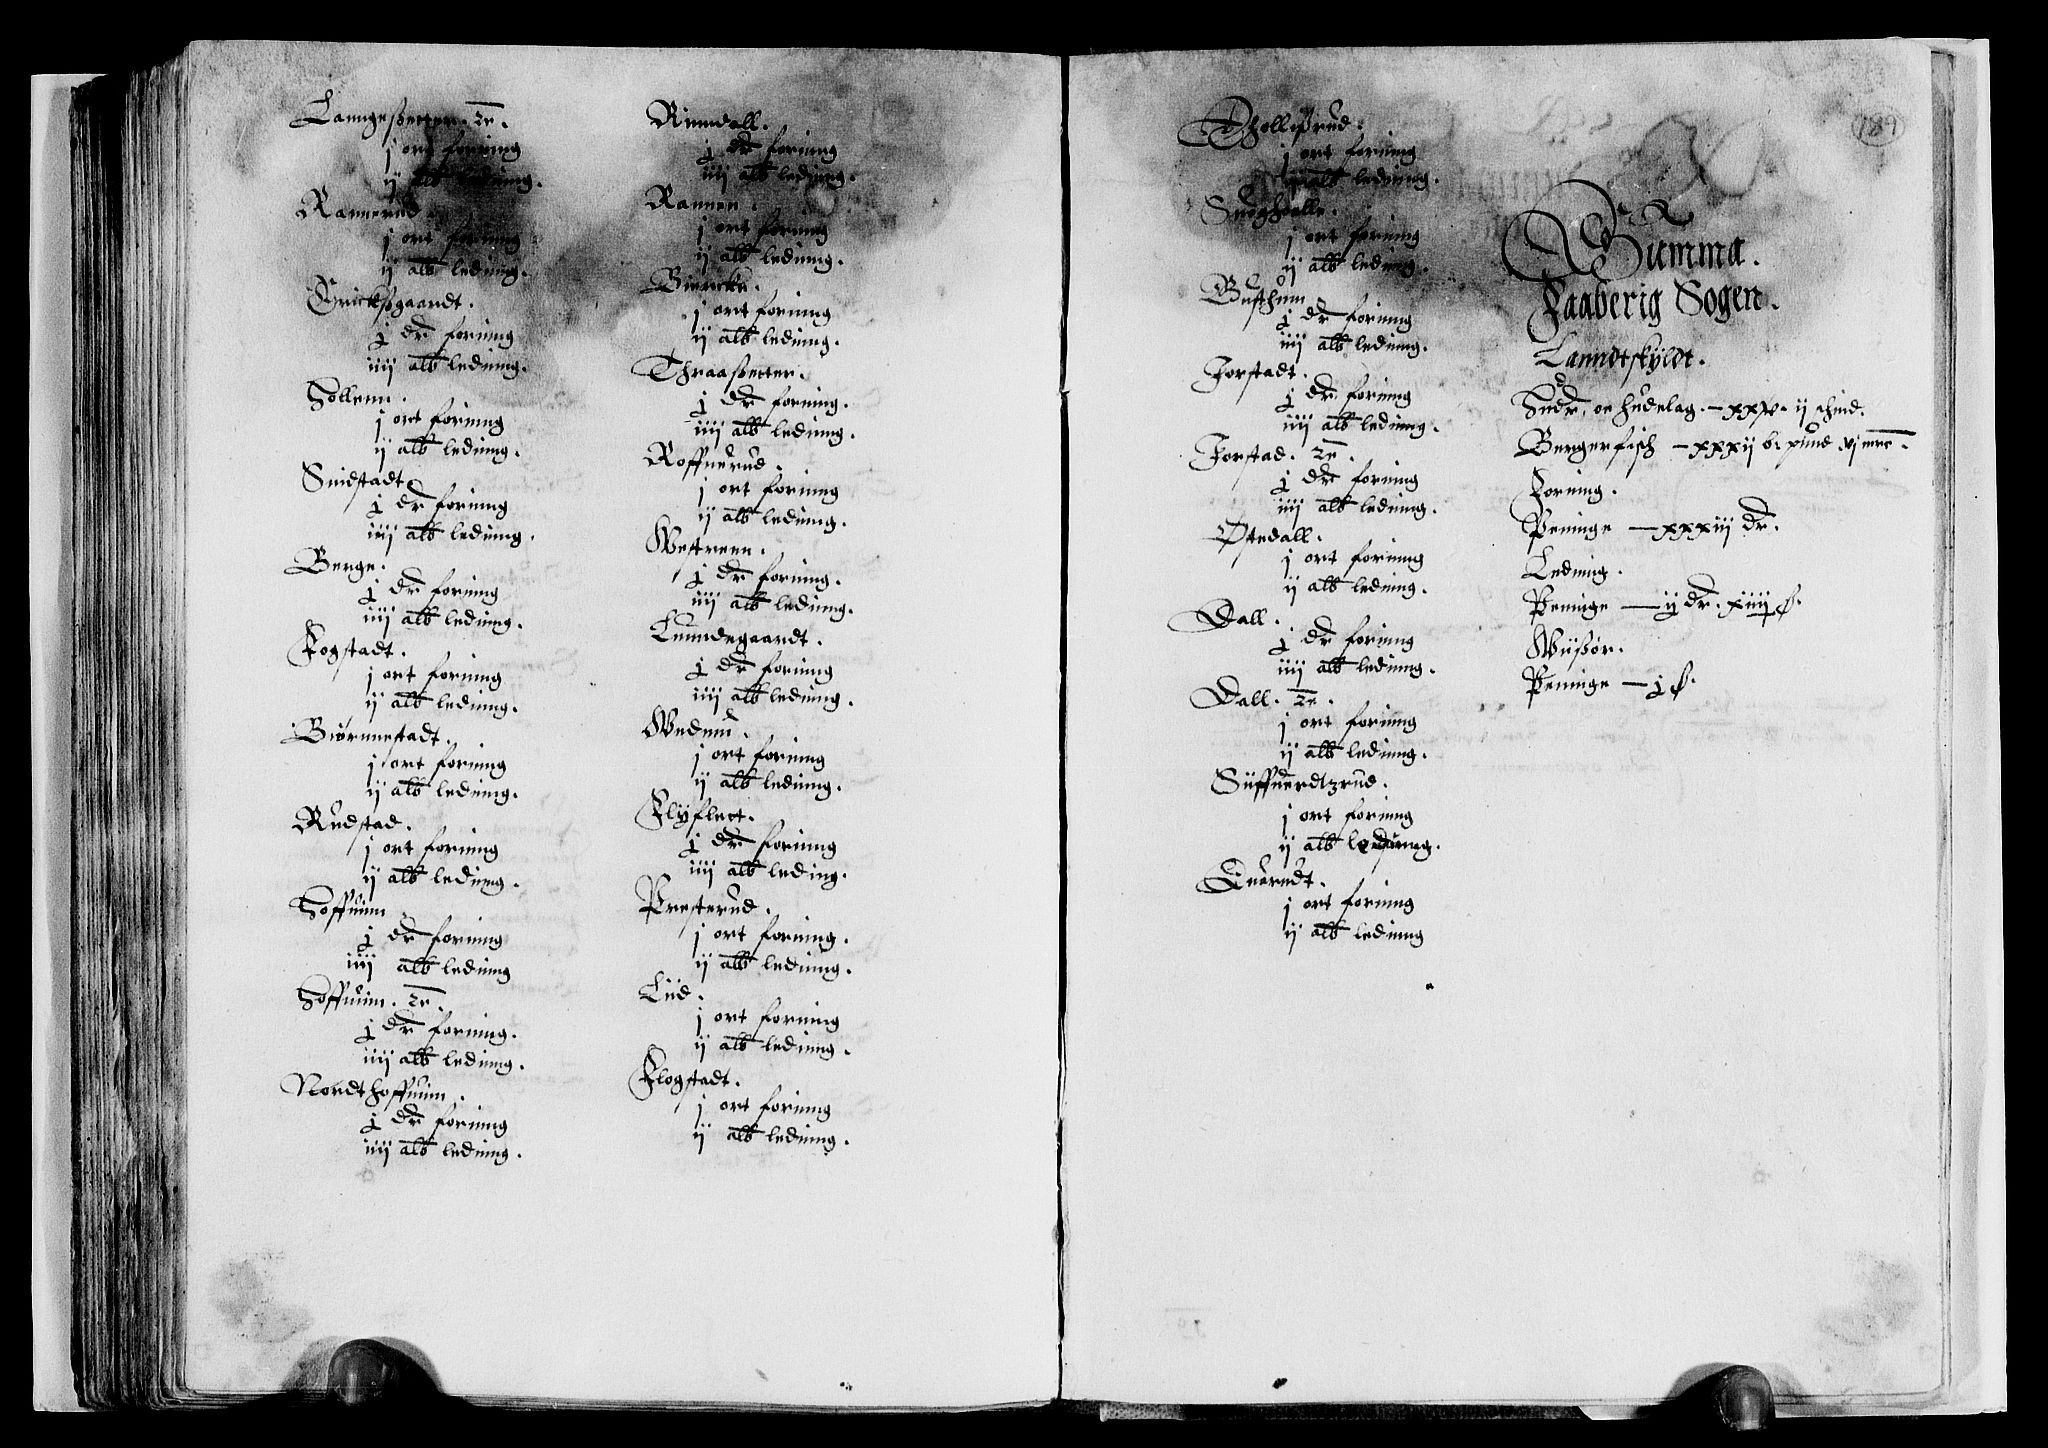 Lanngeßetter. 2e.
j ort forning
ij alb ledning.
Rannerud.
j ort forning
ij alb ledning.
Ericksgaardt.
j dr forning
iiij alb ledning.
Sollem.
j ort forning
ij alb ledning.
Suidstadt.
j dr forning
iiij alb ledning.
Berge.
j dr forning
iiij alb ledning.
Fogstadt.
j ort forning
ij alb ledning.
Biørnnestadt.
j ort forning
ij alb ledning.
Rudstad.
j ort forning
ij alb ledning.
Hoffuim
j dr forning
iiij alb ledning
Hoffuim. 2e.
j dr forning.
iiij alb ledning.
Nordthoffuim.
j dr forning
iiij alb ledning.
Rinndall.
j dr forning
iiij alb ledning.
Rannen.
j ort forning
ij alb ledning.
Biercke.
j ort forning
ij alb ledning.
Thraaßetter.
j dr forning.
iiij alb ledning.
Roffuerud.
j ort forning
ij alb ledning.
Westreen.
j dr forning.
iiij alb ledning.
Lunndegaardt.
j dr forning
iiij alb ledning.
Wedem.
j ort forning
ij alb ledning.
Flÿflett.
j dr forning
iiij alb leding.
Presterud.
j ort forning.
ij alb ledning.
Lid.
j ort forning
ij alb ledning.
Flogstadt.
j ort forning
ij alb ledning.
189
Thollißrud.
j ort forning
ij alb ledning.
j ort forning
ij alb ledning.
Busthum
j dr forning
iiij alb ledning.
Jorstadt.
j dr forning
iiij alb ledning.
Jorstad. 2e.
j dr forning
iiij alb ledning.
Østedall.
j ort forning
ij alb ledning.
Dall.
j dr forning
iiij alb ledning.
Dall. 2e.
j ort forning
ij alb ledning.
Suffuerdtzrud.
j ort forning
ij alb ledning.
j ort forning
ij alb ledning
Summa.
Faaberig Sogen.
Lanndtskÿldt.
hudelag. – xxv. ij schind.
Bergerfisch – xxxij b. pund vj mrc.
Forning.
Peninge – xxxiij dr.
Ledning.
Peninge – ij dr. xiiij ß.
Wißør.
Peninge – j ß.